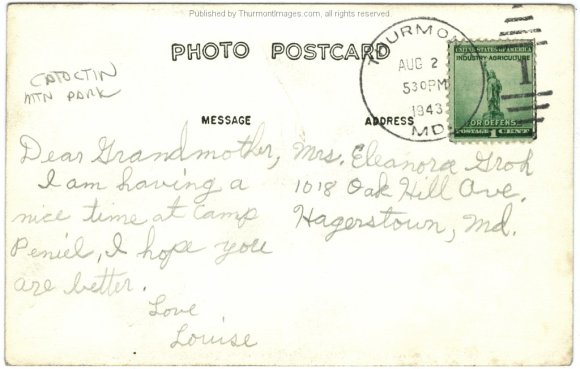 Published by ThurmontImages.com, all rights reserved.
PHOTO POSTCARD
CATOCTIN
MTN PARK
THURMONT
AUG 2
530PM
1943
MD.
UNITED STATES OF AMERICA
INDUSTRY·AGRICULTURE
1
FOR DEFENSE
POSTAGE 1 CENT
MESSAGE
ADDRESS
Dear Grandmother,
I am having a
nice time at Camp
Peniel, I hope you
are better.
Love
Louise
Mrs. Eleanora Groh
1018 Oak Hill Ave.
Hagerstown, Md.